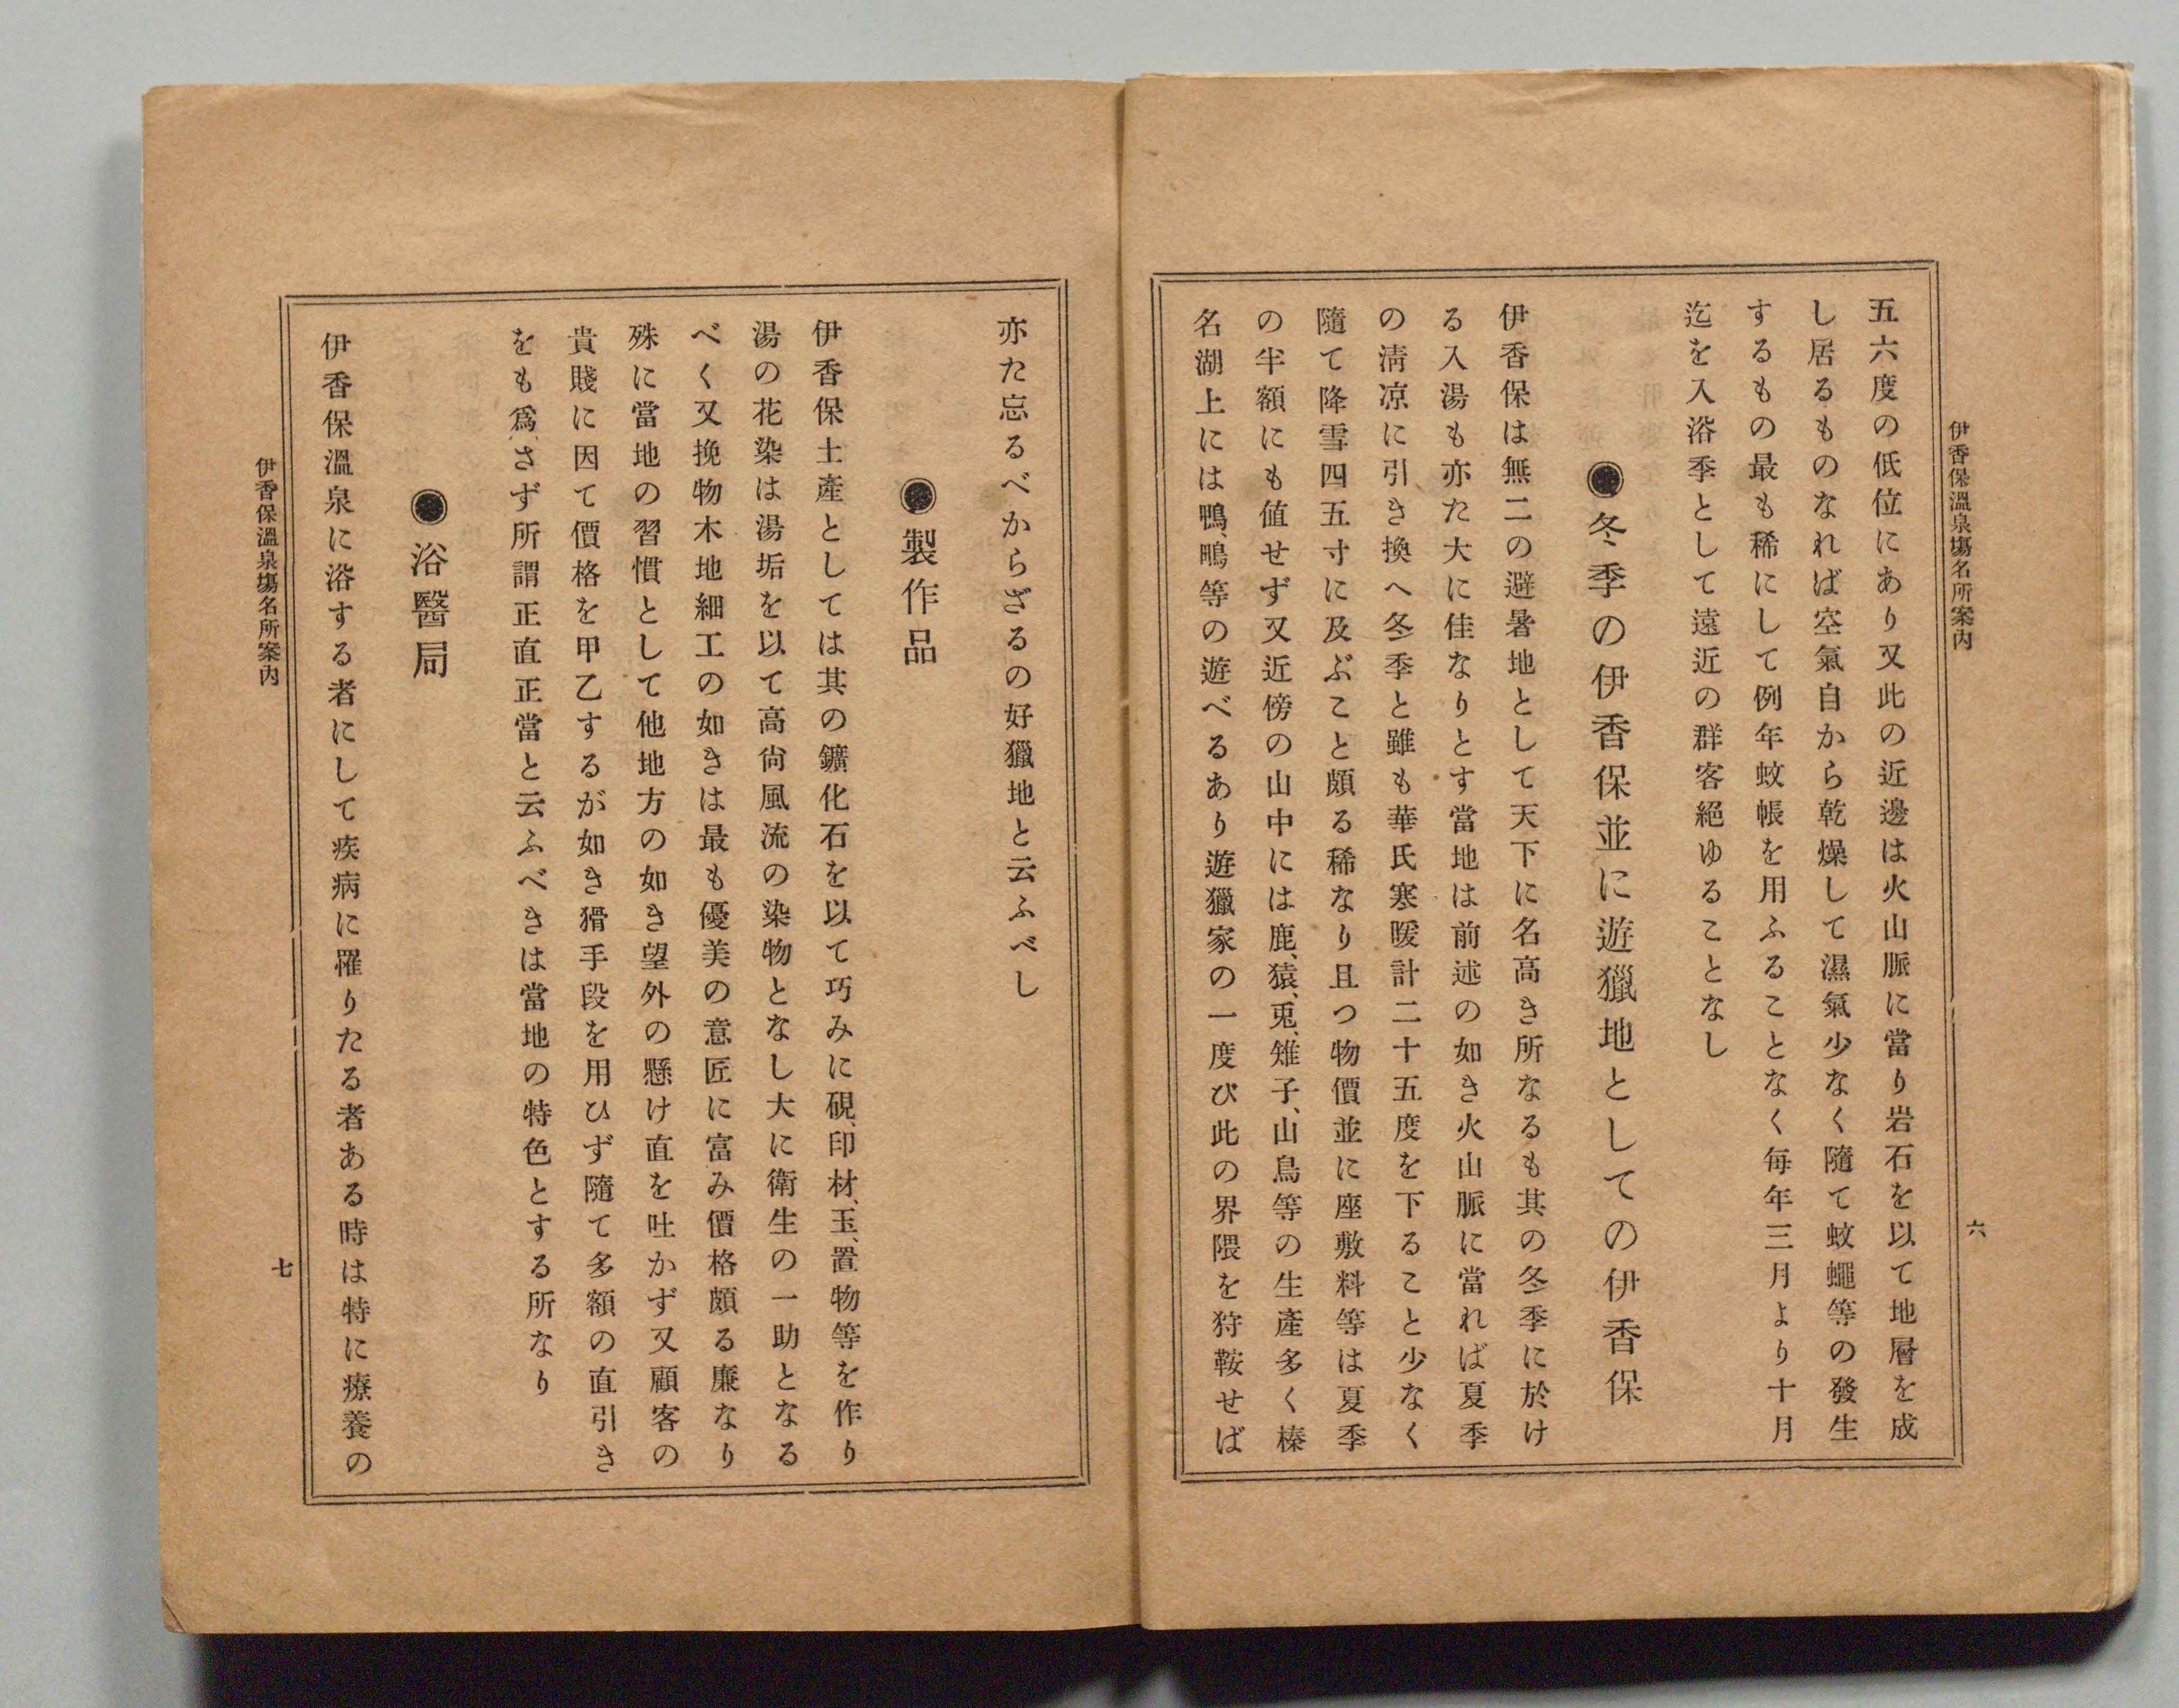 伊香保溫泉塲名所案内
六
五六度の低位にあり又此の近邊は火山脈に當り岩石を以て地層を成
し居るものなれば空氣自から乾燥して濕氣少なく隨て蚊蠅等の發生
するもの最も稀にして例年蚊帳を用ふることなく毎年三月より十月
迄を入浴季として遠近の群客絕ゆることなし
◉冬季の伊香保並に遊獵地としての伊香保
伊香保は無二の避暑地として天下に名高き所なるも其の冬季に於け
る入湯も亦た大に佳なりとす當地は前述の如き火山脈に當れば夏季
の淸凉に引き換へ冬季と雖も華氏寒暖計二十五度を下ること少なく
隨て降雪四五寸に及ぶこと頗る稀なり且つ物價並に座敷料等は夏季
の半額にも値せず又近傍の山中には鹿、猿、兎、雉子、山鳥等の生產多く榛
名湖上には鴨、鴫等の遊べるあり遊獵家の一度び此の界隈を狩鞍せば
亦た忘るべからざるの好獵地と云ふべし
◉製作品
伊香保土產としては其の鑛化石を以て巧みに硯、印材、玉、置物等を作り
湯の花染は湯垢を以て高尙風流の染物となし大に衛生の一助となる
べく又挽物木地細工の如きは最も優美の意匠に富み價格頗る廉なり
殊に當地の習慣として他地方の如き望外の懸け直を吐かず又顧客の
貴賤に因て價格を甲乙するが如き猾手段を用ひず隨て多額の直引き
をも爲さず所謂正直正當と云ふべきは當地の特色とする所なり
◉浴醫局
伊香保溫泉に浴する者にして疾病に罹りたる者ある時は特に療養の
伊香保溫泉塲名所案内
七